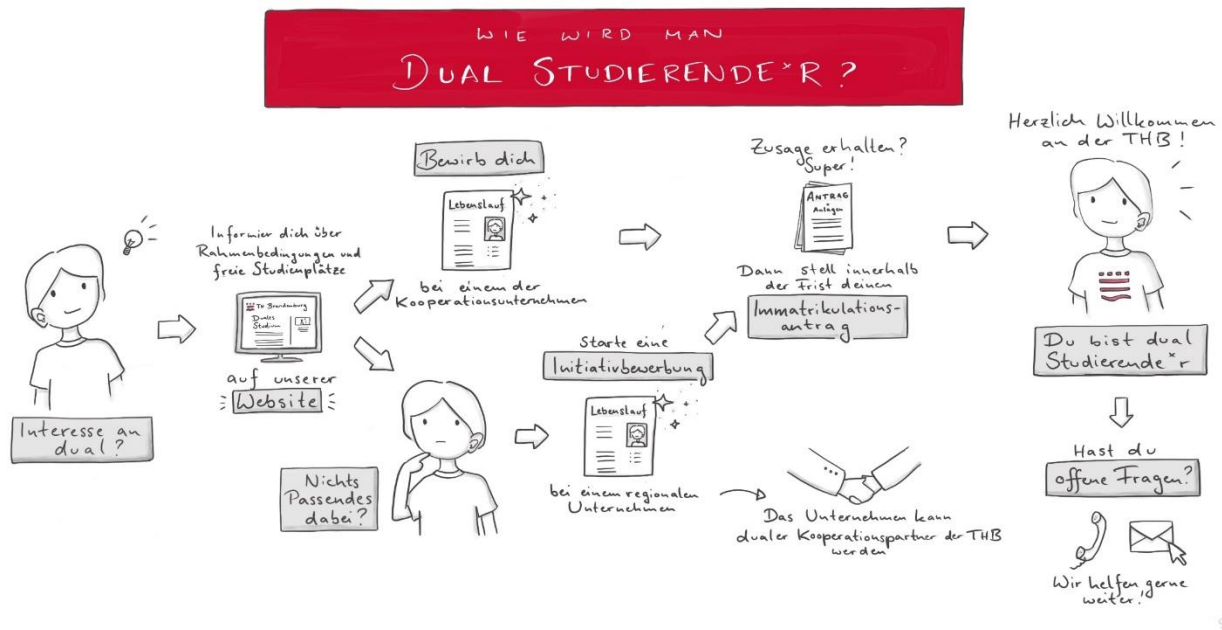 WIE WIRD MAN
DUAL STUDIERENDE*R?
Interesse an
dual?
Informier dich über
Rahmenbedingungen und
freie Studienplätze
TH Brandenburg
Duales
Studium
auf unserer
Website
Bewirb dich
Lebenslauf
bei einem der
Kooperationsunternehmen
Nichts
Passendes
dabei?
Starte eine
Initiativbewerbung
Lebenslauf
bei einem regionalen
Unternehmen
Das Unternehmen kann
dualer Kooperationspartner der THB
werden
Zusage erhalten?
Super!
ANTRAG
Anlagen
Dann stell innerhalb
der Frist deinen
Immatrikulations-
antrag
Herzlich Willkommen
an der THB!
Du bist dual
Studierende*r
Hast du
offene Fragen?
Wir helfen gerne
weiter!